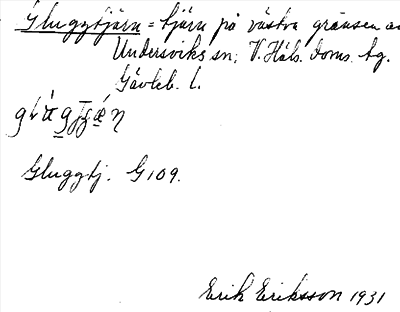 Gluggtjärn = tjärn på västra gränsen av
Undersviks sn; V. Häls. Doms. tg.
Gävleb. l.
Gluggtj. G 109.
Erik Eriksson 1931